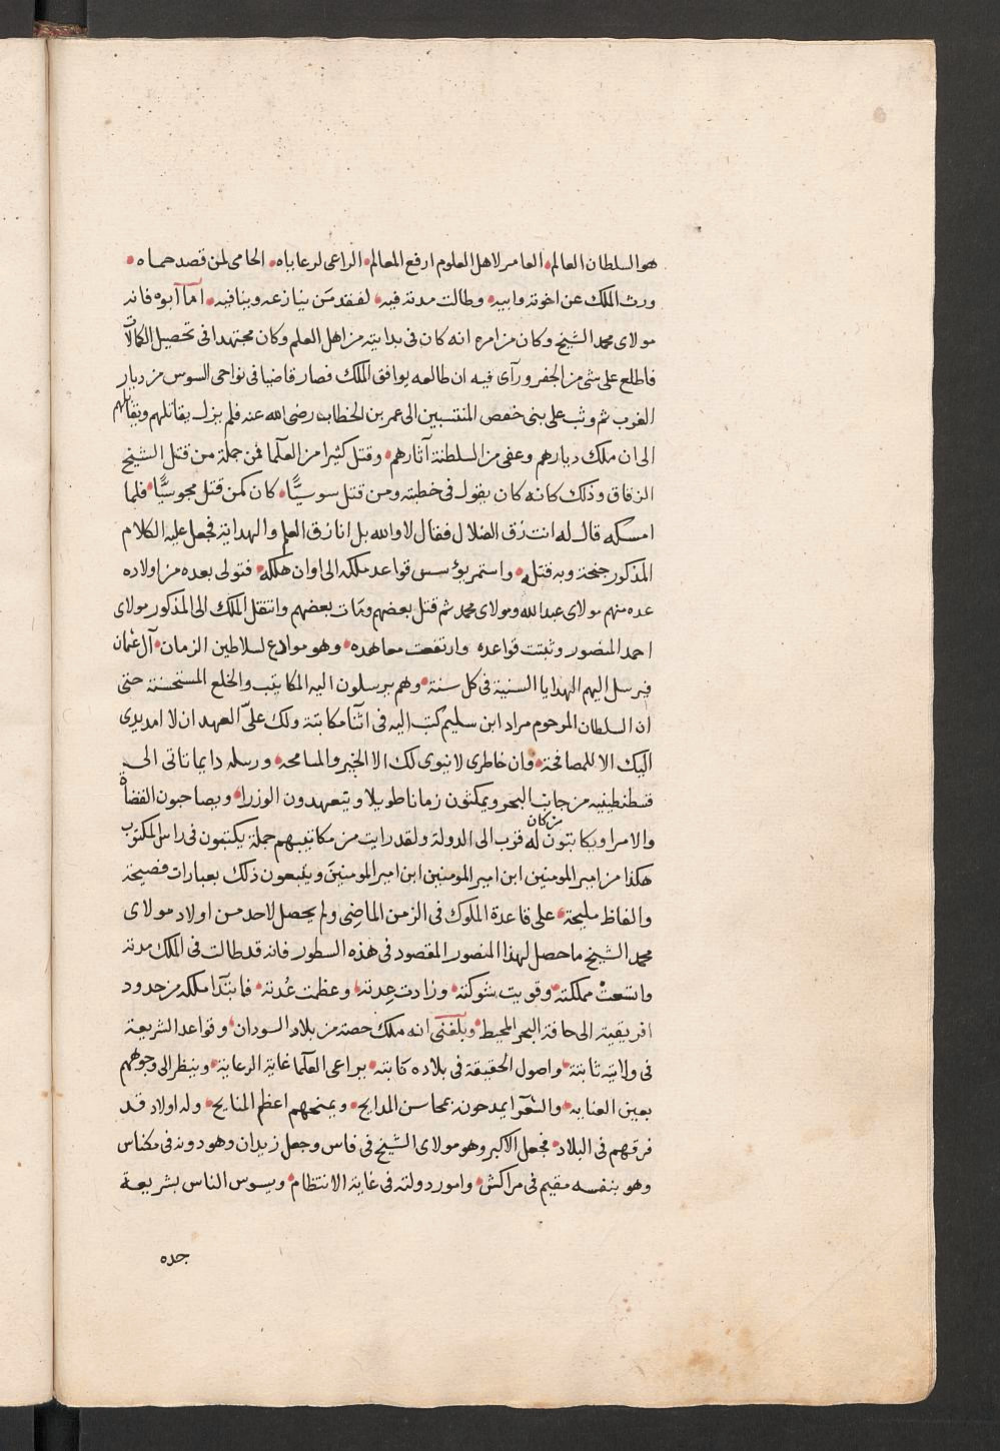 هو السلطان العالم، العامر لاهل العلوم ارفع المعالم، الراعى لرعاياه، الحامى لمن قصد حماه،
ورث الملك عن اخوته وابيه، وطالت مدته فيه، لفقد من ينازعه وينافيه، اما ابوه فانه
مولاى محمد الشيخ وكان من امره انه كان فى بدايته من اهل العلم وكان مجتهدا فى تحصيل الكمالات
فاطلع على شئ من الجفر ورآى فيه ان طالعه يوافق الملك فصار قاضيا فى نواحى السوس من ديار
الغرب ثم وثب على بنى حفص المنتسبين الى عمر بن الخطاب رضى الله عنه فلم يزل يقاتلهم ويقابلهم
الى ان ملك ديارهم وعفى من السلطنة آثارهم، وقتل كثيرا من العلما فمن جملة من قتل الشيخ
الزقاق وذلك كانه كان يقول فى خطبته ومن قتل سوسيًّا، كان كمن قتل مجوسيًّا، فلما
امسكه قال له انت زق الضلال فقال لا والله بل انا زق العلم والهداية فجعل عليه الكلام
المذكور جنحة وبه قتله، واستمر يؤسس قواعد ملكه الى اوان هلكه، فتولى بعده من اولاده
عده منهم مولاى عبد الله ومولاى محمد ثم قتل بعضهم ومات بعضهم وانتقل الملك الى المذكور مولاى
احمد المنصور وثبتت قواعده وارتفعت معاهده، وهو موادع لسلاطين الزمان، آل عثمان
فيرسل اليهم الهدايا السنية فى كل سنة، وهم يرسلون اليه المكاتيب والخلع المستحسنة حتى
ان السلطان المرحوم مراد ابن سليم كتب اليه فى اثنا مكاتبة ولك علىّ العهد ان لا امد يدى
اليك الا للمصافحة، وان خاطرى لا ينوى لك الا الخير والمسامحه، ورسله دايما تاتى الى
قسطنطينيه من جانب البحر ويمكثون زمانا طويلا ويتعهدون الوزرا، ويصاحبون القضاة
والامرا ويكاتبون من كان له قرب الى الدولة ولقد رايت من مكاتيبهم جملة يكتبون فى راس المكتوب
هكذا من امير المومنين ابن امير المومنين ابن امير المومنين ويتبعون ذلك بعبارات فصيحة
والفاظ مليحة، على قاعدة الملوك فى الزمن الماضى ولم يحصل لاحد من اولاد مولاى
محمد الشيخ ما حصل لهذا المنصور المقصود فى هذه السطور فانه قد طالت فى الملك مدته
واتسعت مملكته، وقويت شوكته، وزادت عِدته، وعظمت عُدته، فابتدا ملكه من حدود
افريقية الى حافة البحر المحيط، وبلغنى انه ملك حصة من بلاد السودان، وقواعد الشريعة
فى ولايته ثابتة، واصول الحقيقة فى بلاده كابته، يراعى العلما غاية الرعاية، وينظر الى وجوههم
بعين العنايه، والشعرا يمدحونه بمحاسن المدايح، ويمنحهم اعظم المنايح، وله اولاد قد
فرقهم فى البلاد، فجعل الاكبر وهو مولاى الشيخ فى فاس وجعل زيدان وهو دونه فى مكناس
وهو بنفسه مقيم فى مراكش، وامور دولته فى غاية الانتظام، ويسوس الناس بشريعة
جده